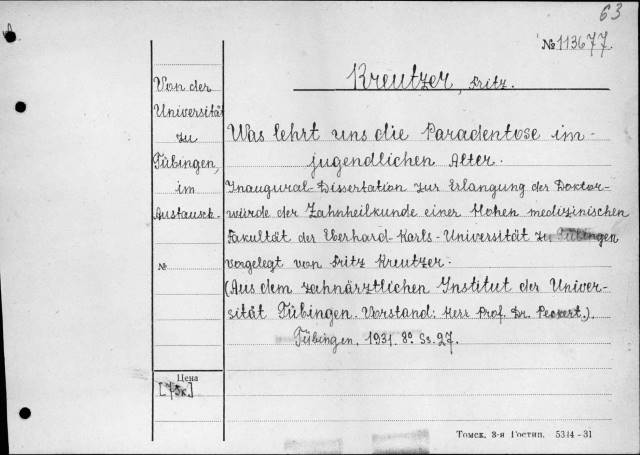 63
№ 113677.
Kreutzer, Fritz.
Von der
Universität
zu
Tübingen,
im
Austausch.
№
Was lehrt uns die Paradentose im
jugendlichen Alter.
Inaugural-Dissertation zur Erlangung der Doktor-
würde der Zahnheilkunde einer Hohen medizinischen
Fakultät der Eberhard-Karls-Universität zu Tübingen
vorgelegt von Fritz Kreutzer.
(Aus dem zahnärztlichen Institut der Univer-
sität Tübingen. Vorstand: Herr Prof. Dr. Peckert.).
Tübingen, 1931. 8º. Ss. 27.
Цена
[75к]
Томск, 3-я Гостип. 5344-31